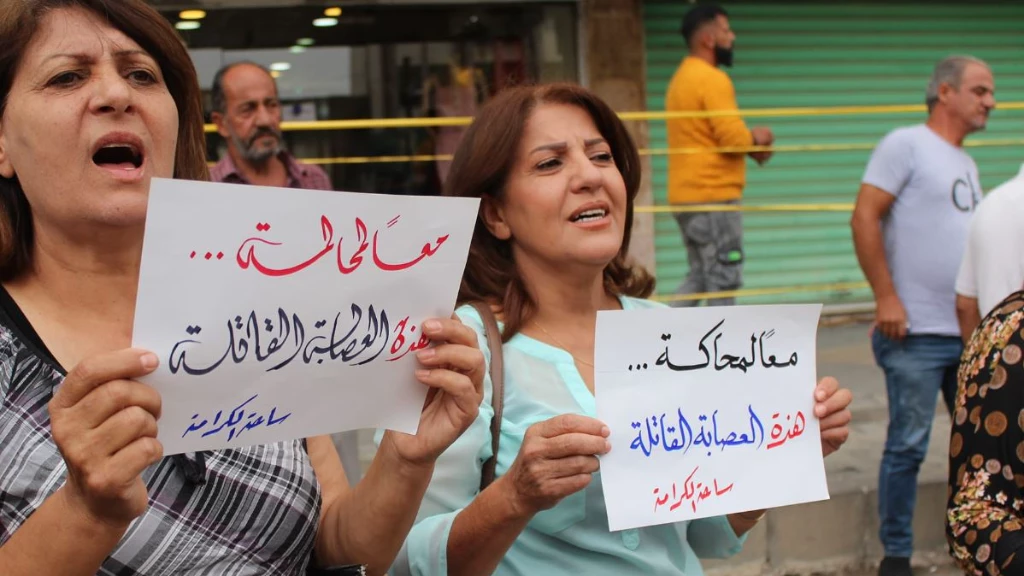 معاً لمحاكمة ...
هذة العصابة القاتلة
ساحة الكرامة
معاً لمحاكمة ...
هذة العصابة القاتلة
ساحة الكرامة